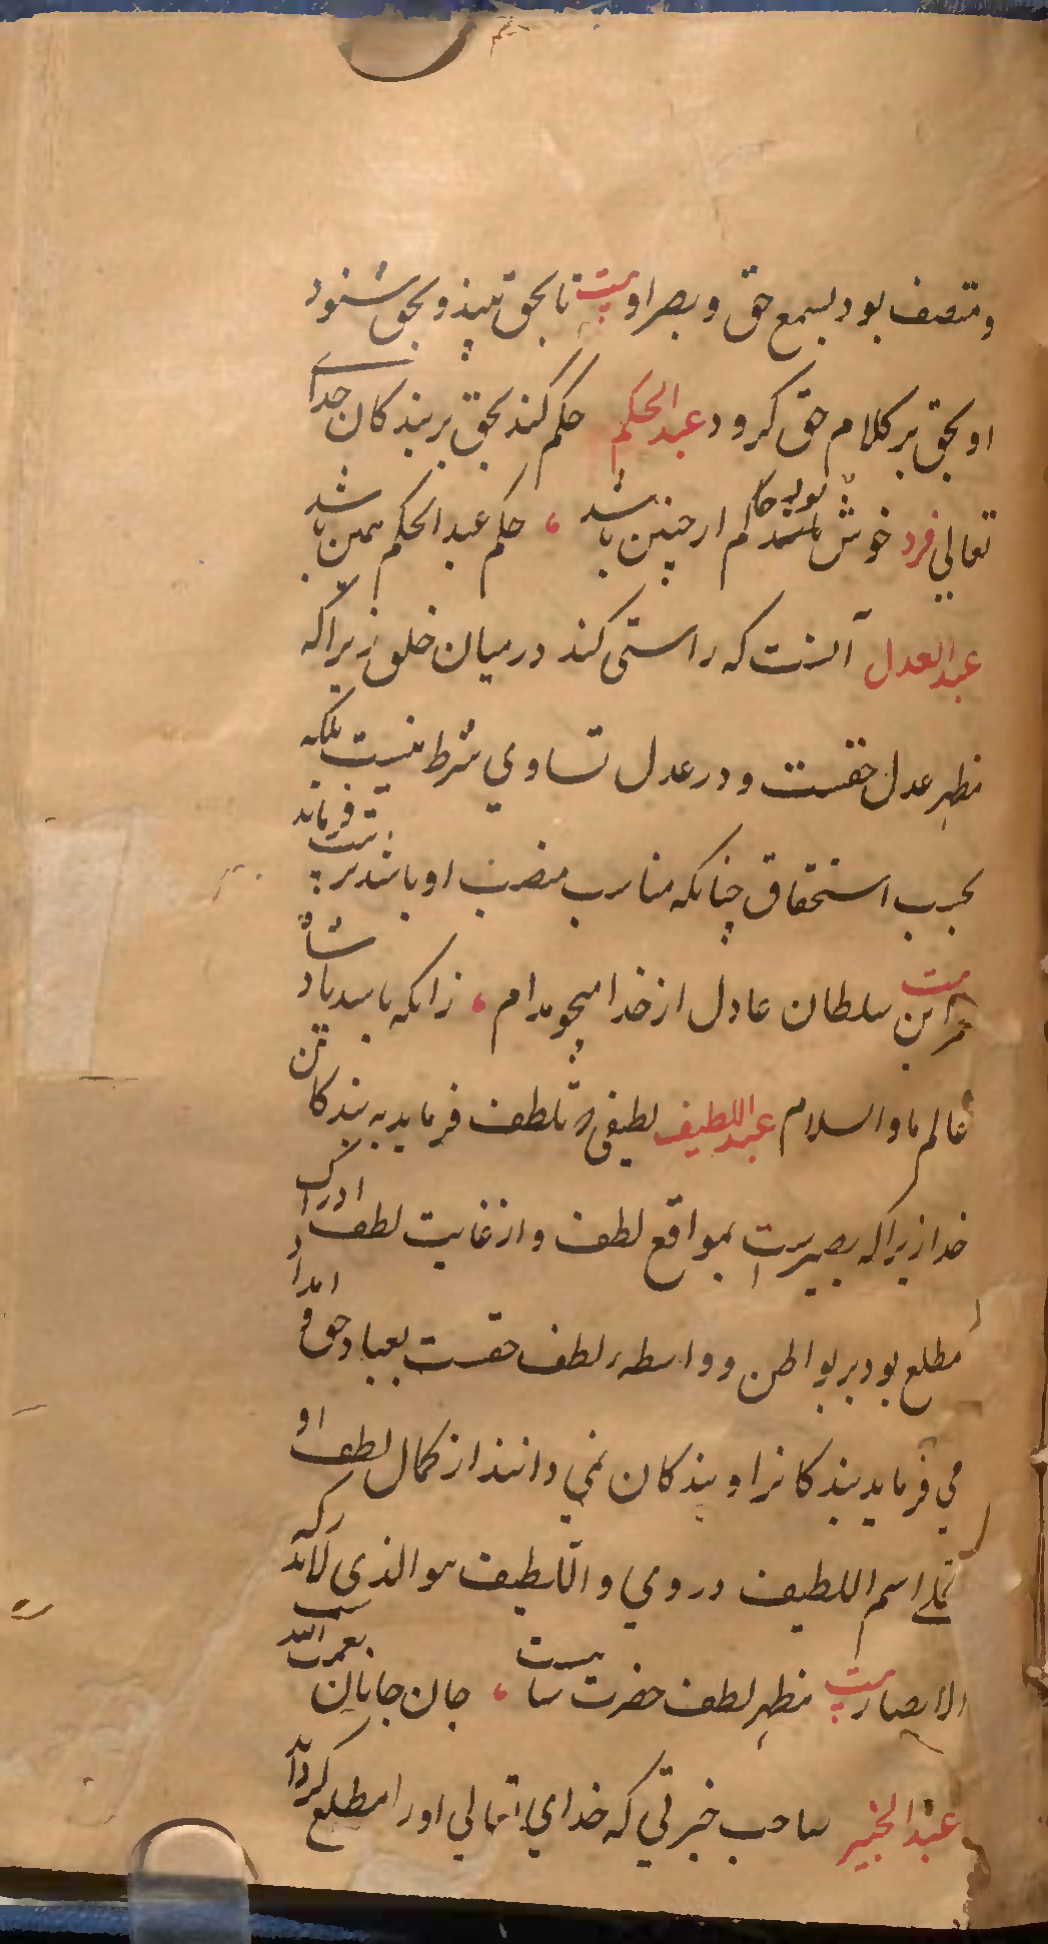 و متصف بود بسمع حق و بصر او بیت تا بحق بیند و بحق شنود
او بحق بر کلام حق کرود عبد الحکم حکم کند بحق بر بندکان خدای
تعالی فرد خوش بود حاکم ار چنین باشد ، حکم عبد الحکم همین باشد
عبد العدل آنست که راستی کند در میان خلق زیراکه
مظهر عدل حقست و در عدل تساوی شرط نیست بلکه
بحسب استحقاق چنانکه مناسب منصب او باشد تربیت فرماید
بیت عمر این سلطان عادل از خدا میجو مدام ، زانکه باشد یاد شاه
عالم ما والسلام عبد اللطیف لطیفی که تلطف فرماید به بندکان
خدا زیراکه بصیرست بمواقع لطف و از غایت لطف ادراک
مطلع بود بر بواطن و واسطه لطف حقست بعباد و حق امداد
می فرماید بندکانرا و بندکان نمی دانند از کمال لطف او
تجلی اسم اللطیف در وی و اللطیف هو الذی لا تدرکه
الابصار بیت مظهر لطف حضرت ، جان جانان نعمت الله
عبد الخبیر صاحب خبرتی که خدای تعالی او را مطلع